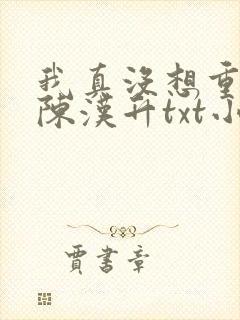 我真沒想重
陳漢升txt小
賈書章